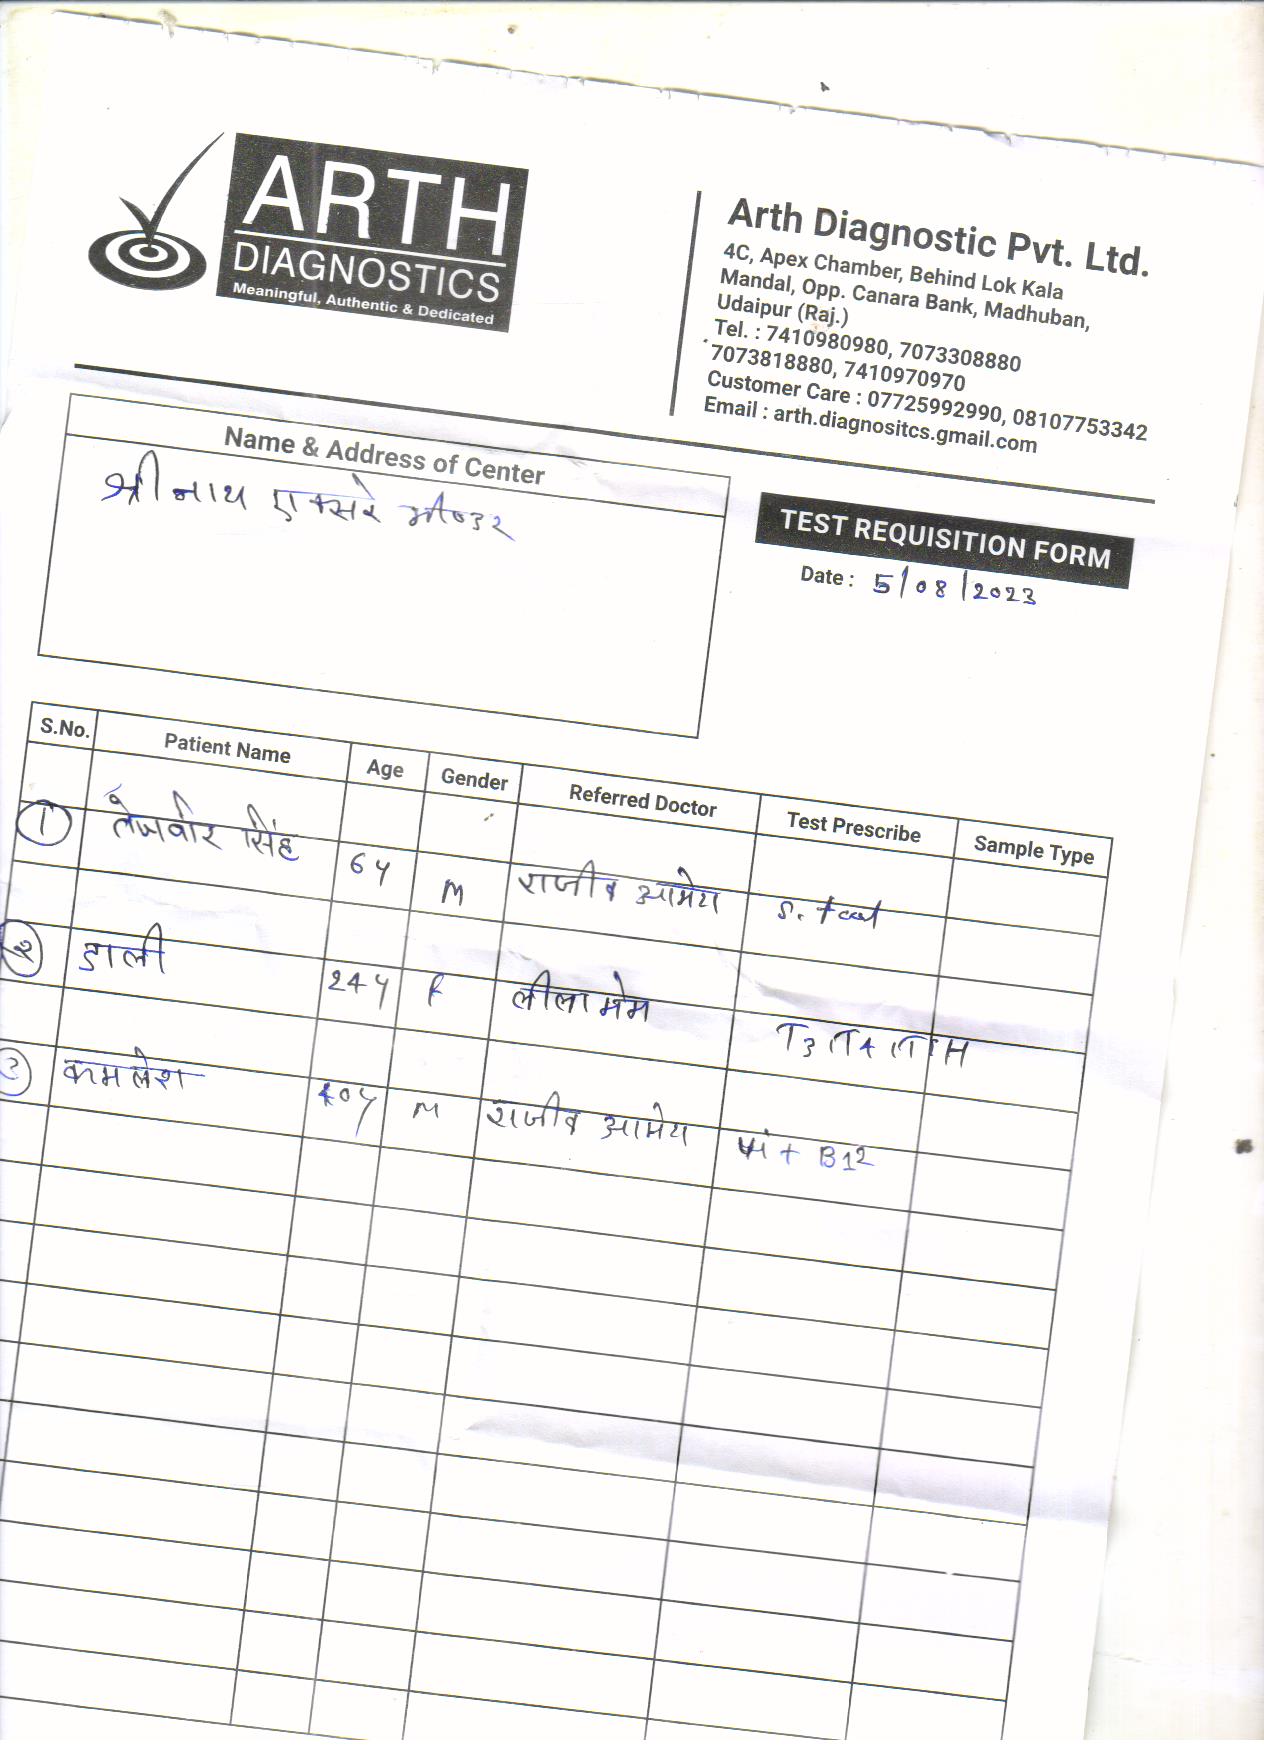 ARTH
DIAGNOSTICS
Meaningful, Authentic & Dedicated
Arth Diagnostic Pvt. Ltd.
4C, Apex Chamber, Behind Lok Kala
Mandal, Opp. Canara Bank, Madhuban,
Udaipur (Raj.)
Tel. : 7410980980, 7073308880
7073818880, 7410970970
Customer Care : 07725992990, 08107753342
Email : arth.diagnositcs.gmail.com
Name & Address of Center
श्रीनाथ एक्सरे भीण्डर
TEST REQUISITION FORM
Date : 5/08/2023
S.No. Patient Name Age Gender Referred Doctor Test Prescribe Sample Type
1 तेजवीर सिंह 6y M राजीव आमेय S.
२ डाली 24y F लीला मेम T3, T4, TSH
3 कमलेश 40y M राजीव आमेय + B12